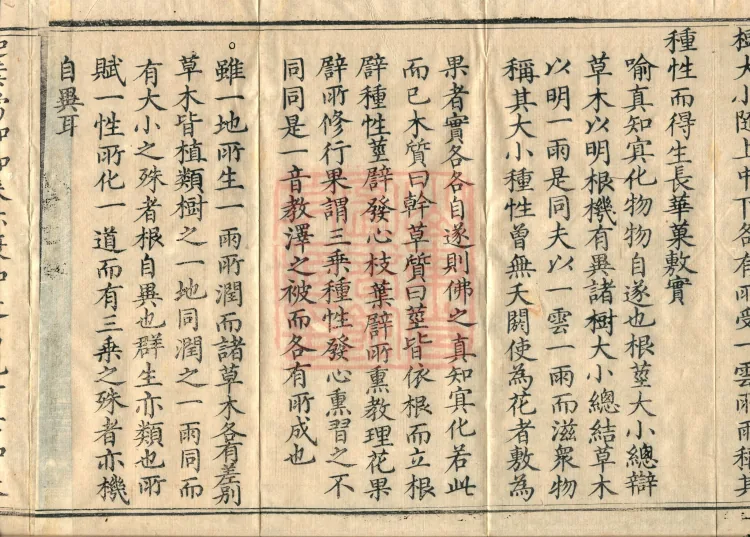 樹大小隨上中下各有所受一雲所雨稱其
種性而得生長華菓敷實
喻真知冥化物物自遂也根莖大小總辯
草木以明根機有異諸樹大小總結草木
以明一雨是同夫以一雲一雨而滋衆物
稱其大小種性曾無夭閼使為花者敷為
果者實各各自遂則佛之真知冥化若此
而已木質曰幹草質曰莖皆依根而立根
譬種性莖譬發心枝葉譬所熏教理花果
譬所修行果謂三乗種性發心熏習之不
同同是一音教澤之被而各有所成也
雖一地所生一雨所潤而諸草木各有差别
草木皆植類樹之一地同潤之一雨同而
有大小之殊者根自異也群生亦類也所
賦一性所化一道而有三乗之殊者亦機
自異耳